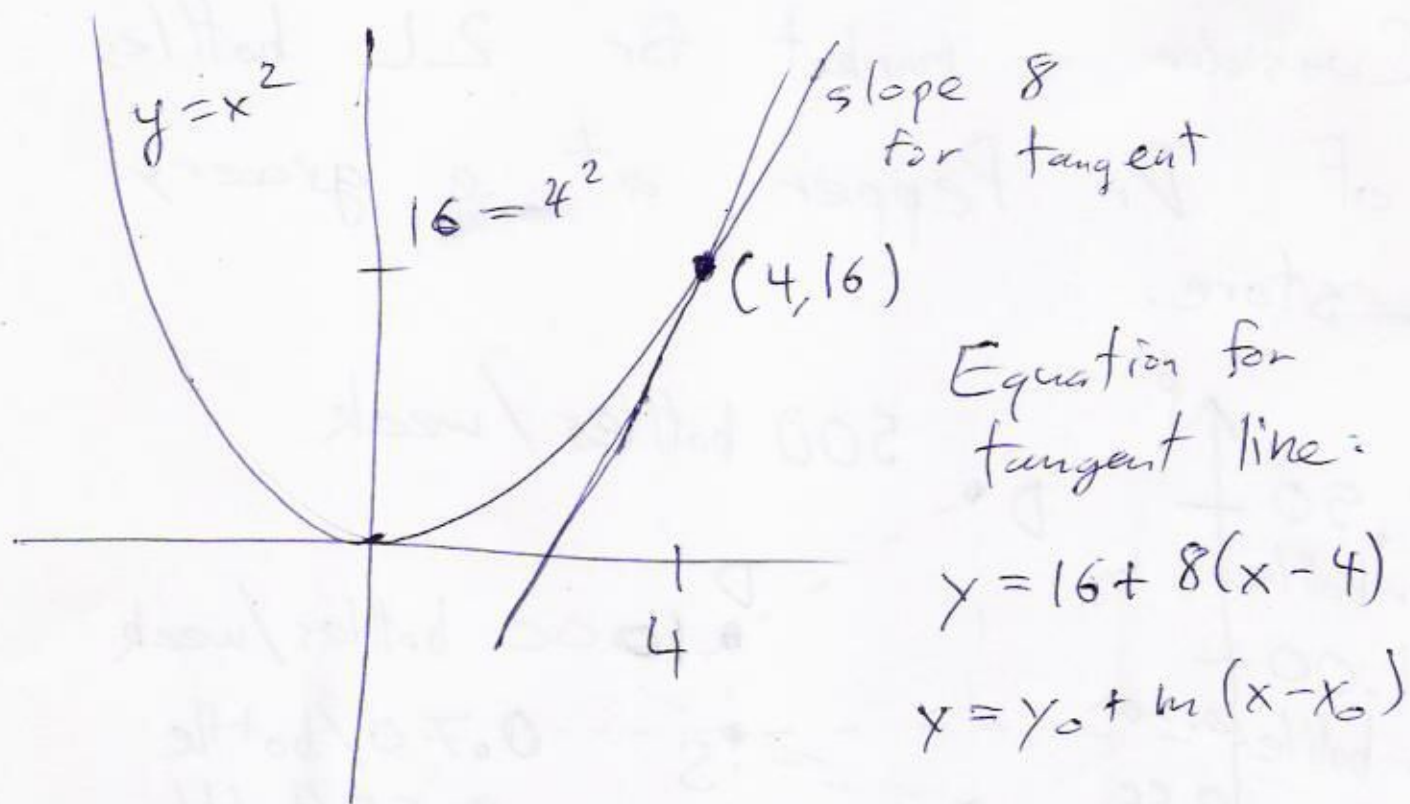 y = x²
16 = 4²
slope 8
for tangent
(4, 16)
Equation for
tangent line:
y = 16 + 8(x - 4)
y = y₀ + m(x - x₀)
4